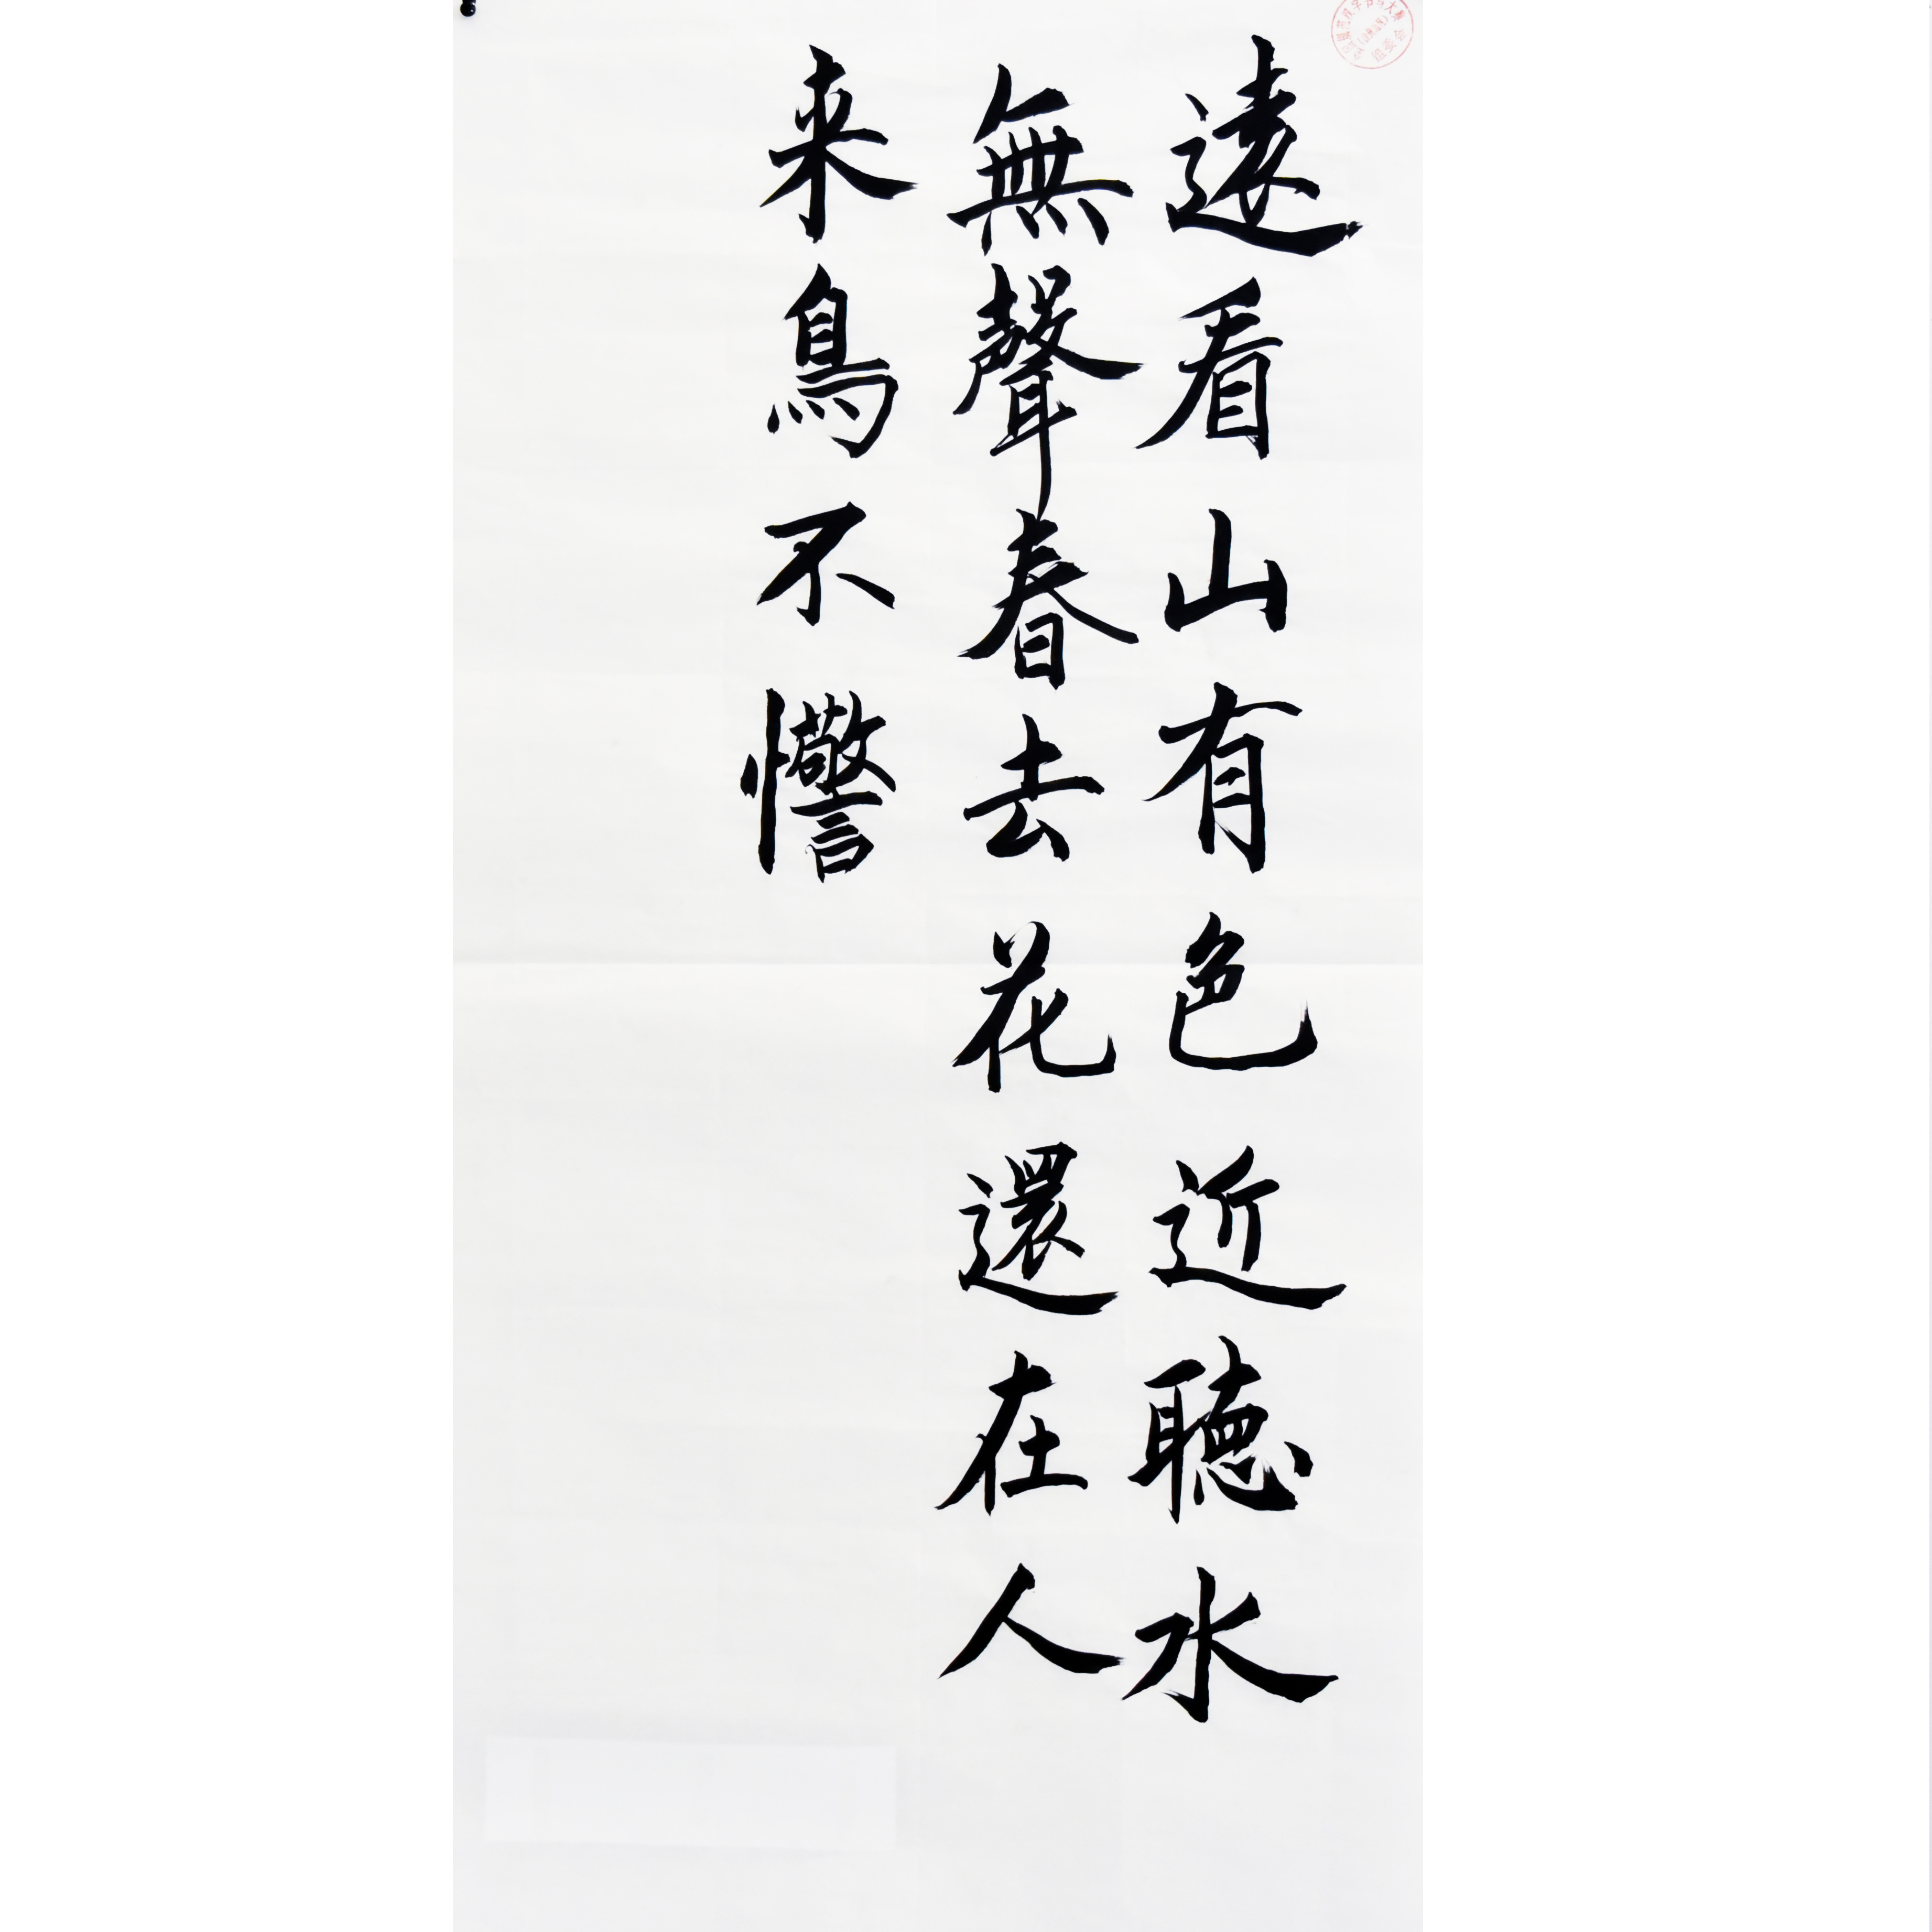 遠看山有色近聴水
無聲春去花還在人
来鳥不驚